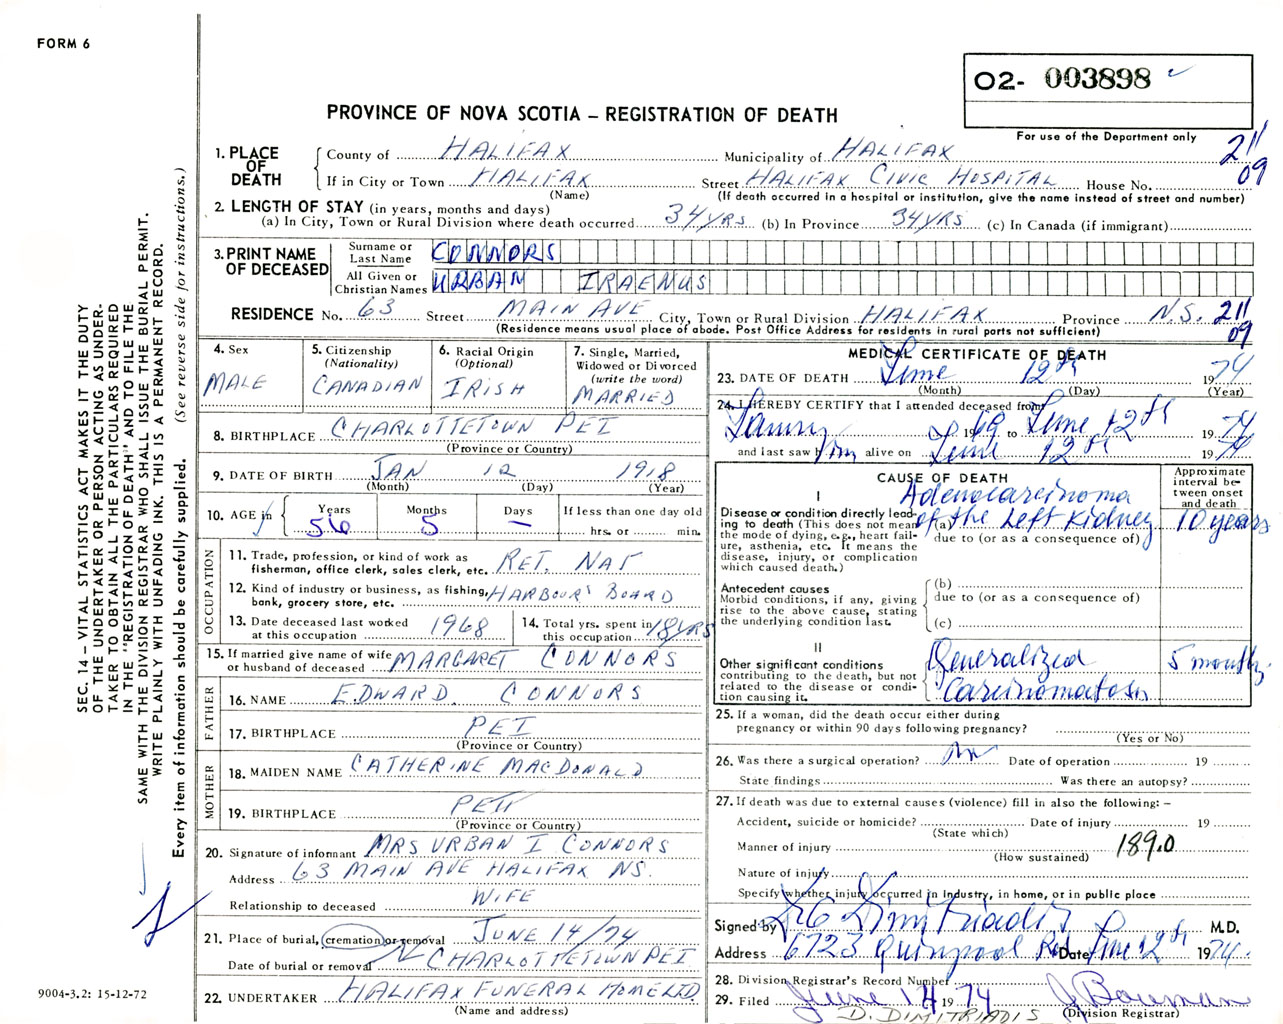 FORM 6
02- 003898
For use of the Department only
PROVINCE OF NOVA SCOTIA – REGISTRATION OF DEATH
211
09
1. PLACE OF DEATH
County of HALIFAX Municipality of HALIFAX
If in City or Town HALIFAX Street HALIFAX CIVIC HOSPITAL House No.
(Name) (If death occurred in a hospital or institution, give the name instead of street and number)
2. LENGTH OF STAY (in years, months and days)
(a) In City, Town or Rural Division where death occurred 34 YRS (b) In Province 34 YRS (c) In Canada (if immigrant)
3. PRINT NAME OF DECEASED
Surname or Last Name CONNORS
All Given or Christian Names URBAN IRAENUS
RESIDENCE No. 63 Street MAIN AVE City, Town or Rural Division HALIFAX Province N.S. 211
09
(Residence means usual place of abode. Post Office Address for residents in rural parts not sufficient)
4. Sex
MALE
5. Citizenship
(Nationality)
CANADIAN
6. Racial Origin
(Optional)
IRISH
7. Single, Married,
Widowed or Divorced
(write the word)
MARRIED
8. BIRTHPLACE CHARLOTTETOWN PEI
(Province or Country)
9. DATE OF BIRTH JAN 12 1918
(Month) (Day) (Year)
10. AGE in
Years Months Days If less than one day old
56 5 — hrs. or min.
OCCUPATION
11. Trade, profession, or kind of work as
fisherman, office clerk, sales clerk, etc. RET. NAT
12. Kind of industry or business, as fishing, HARBOUR'S BOARD
bank, grocery store, etc.
13. Date deceased last worked
at this occupation 1968
14. Total yrs. spent in
this occupation 18 YRS
15. If married give name of wife
or husband of deceased MARGARET CONNORS
FATHER
16. NAME EDWARD CONNORS
17. BIRTHPLACE PEI
(Province or Country)
MOTHER
18. MAIDEN NAME CATHERINE MACDONALD
19. BIRTHPLACE PEI
(Province or Country)
20. Signature of informant MRS URBAN I CONNORS
Address 63 MAIN AVE HALIFAX NS.
Relationship to deceased WIFE
21. Place of burial, cremation or removal JUNE 14/74
Date of burial or removal CHARLOTTETOWN PEI
22. UNDERTAKER HALIFAX FUNERAL HOME LTD.
(Name and address)
MEDICAL CERTIFICATE OF DEATH
23. DATE OF DEATH June 12th 1974
(Month) (Day) (Year)
24. I HEREBY CERTIFY that I attended deceased from
1969 to June 12th 1974
and last saw him alive on June 12th 1974
CAUSE OF DEATH
Approximate
interval be-
tween onset
and death
I
Disease or condition directly lead-
ing to death (This does not mean
the mode of dying, e.g., heart fail-
ure, asthenia, etc. It means the
disease, injury, or complication
which caused death.)
Adenocarcinoma
(a) of the Left Kidney 10 years
due to (or as a consequence of)
Antecedent causes
Morbid conditions, if any, giving
rise to the above cause, stating
the underlying condition last.
(b)
due to (or as a consequence of)
(c)
II
Other significant conditions
contributing to the death, but not
related to the disease or condi-
tion causing it.
Generalized 5 months
Carcinomatosis
25. If a woman, did the death occur either during
pregnancy or within 90 days following pregnancy?
(Yes or No)
26. Was there a surgical operation? Date of operation 19
State findings Was there an autopsy?
27. If death was due to external causes (violence) fill in also the following: –
Accident, suicide or homicide? Date of injury 19
(State which)
Manner of injury 189.0
(How sustained)
Nature of injury
Specify whether injury occurred in Industry, in home, or in public place
Signed by M.D.
Address 6723 Quinpool Rd Date June 12th 1974.
28. Division Registrar's Record Number
29. Filed June 14 1974 J Bowman
D. DIMITRIADIS (Division Registrar)
SEC. 14 – VITAL STATISTICS ACT MAKES IT THE DUTY
OF THE UNDERTAKER OR PERSON ACTING AS UNDER-
TAKER TO OBTAIN ALL THE PARTICULARS REQUIRED
IN THE "REGISTRATION OF DEATH" AND TO FILE THE
SAME WITH THE DIVISION REGISTRAR WHO SHALL ISSUE THE BURIAL PERMIT.
WRITE PLAINLY WITH UNFADING INK. THIS IS A PERMANENT RECORD.
Every item of information should be carefully supplied. (See reverse side for instructions.)
9004-3.2: 15-12-72